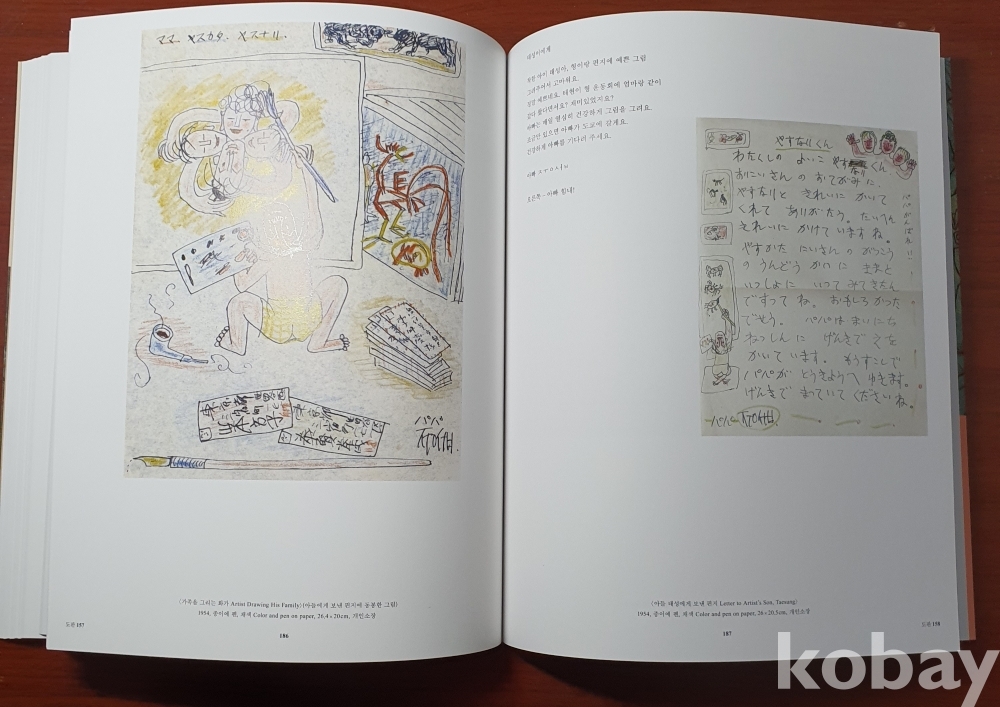 ママ ヤスカタ. ヤスナリ.
パパ
〈가족을 그리는 화가 Artist Drawing His Family〉(아들에게 보낸 편지에 동봉한 그림)
1954, 종이에 펜, 채색 Color and pen on paper, 26.4×20cm, 개인소장
도판 157
186
태성이에게
착한 아이 태성아, 형이랑 편지에 예쁜 그림
그려주어서 고마워요.
정말 예쁘네요. 태현이 형 운동회에 엄마랑 같이
갔다 왔다면서요? 재미있었지요?
아빠는 매일 열심히 건강하게 그림을 그려요.
조금만 있으면 아빠가 도쿄에 갈게요.
건강하게 아빠를 기다려 주세요.
아빠 ㅈㅜㅇㅅㅓㅂ
오른쪽-아빠 힘내!
やすなりくん
わたくしの よいこ やすなりくん
おにいさんの おてがみに.
やすなりと きれいに かいて
くれて ありがたう. たいへん
きれいに かけて いますね.
やすかた にいさんの がっこう
の うんどう かいに ままと
いっしょに いって みてきたん
ですってね. おもしろかった
でせう. パパは まいにち
ねっしんに げんきで えを
かいて います. もうすこしで
パパが とうきょうへ ゆきます.
げんきで まっていて くださいね.
パパ ㅈㅜㅇㅅㅓㅂ
パパ がんばれ!!
〈아들 태성에게 보낸 편지 Letter to Artist's Son, Taesung〉
1954, 종이에 펜, 채색 Color and pen on paper, 26×20.5cm, 개인소장
187
도판 158
kobay